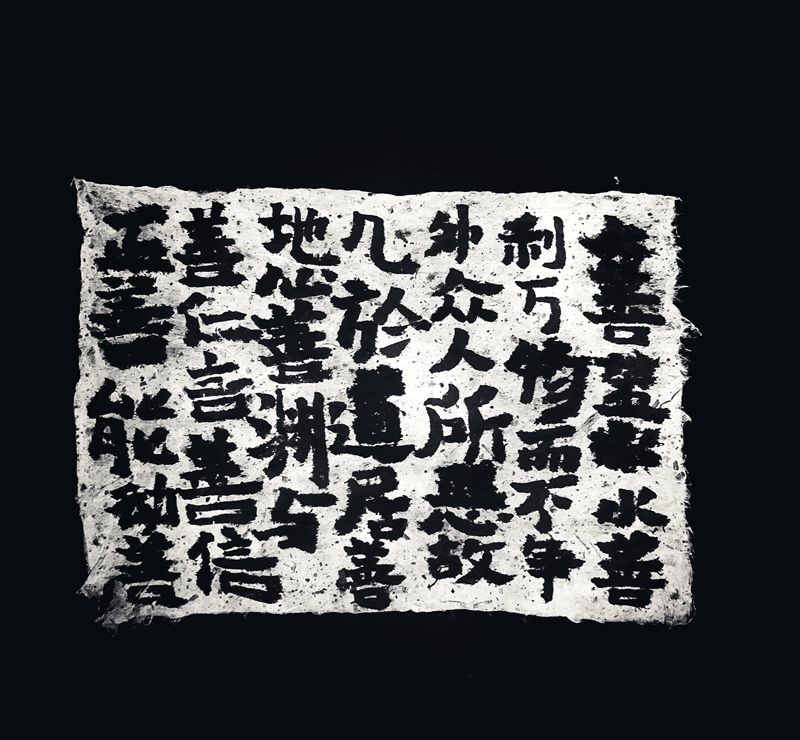 善水善
利万物而不争
处众人所恶故
几於道居善
地心善渊与
善仁言善信
正善能动善